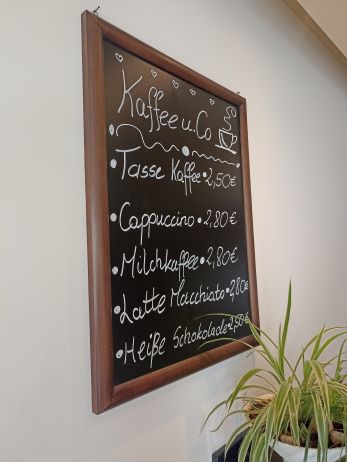 Kaffee u. Co
• Tasse Kaffee • 2,50€
• Cappuccino • 2,80€
• Milchkaffee • 2,80€
• Latte Macchiato • 2,80€
• Heiße Schokolade • 2,50€